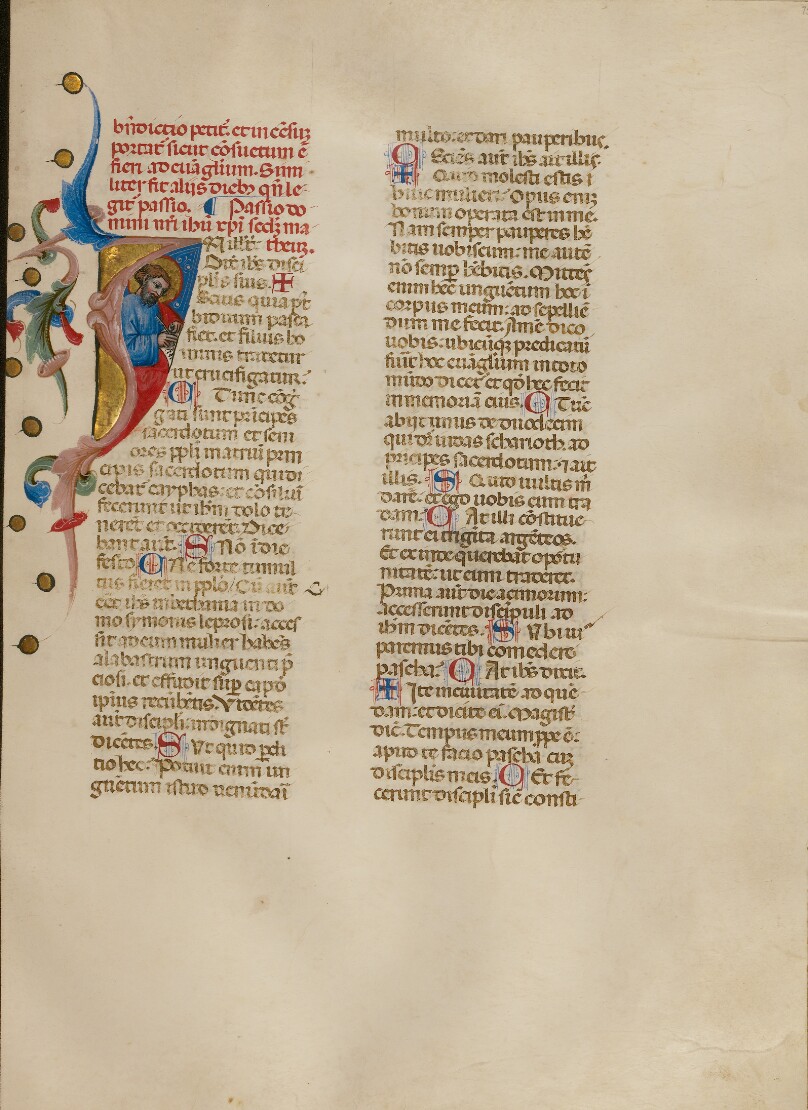 bn̄dictio petit̄. et incēsuȝ
portat̄ sicut cōsuetum ē
fieri ad euāgl̄ium. Simi
liter fit alijs diebȝ qn̄ le-
git̄ passio. ¶ Passio do-
mini nr̄i ihū xp̄i scd̄ȝ ma-
theuȝ.
N illo t̄.
Dix̄ ihs disci
pl̄is suis. ✠
Scitis quia p̄t
biduum pasca
fiet. et filius ho
minis tradetur
ut crucifigatur.
C Tunc cōḡ
gati sunt prīcipes
sacerdotum et seni
ores pp̄li in atriū prin
cipis sacerdotum qui di
cebat̄ cayphas: et cōsiliū
fecerunt ut ihm̄ dolo te-
nerēt et occiderēt. Dice-
bant aūt. S Nō ī die
festo. C Ne forte tumul
tus fieret in pp̄lo. Cū aūt
eēt ihs in bethania in do
mo symonis leprosi: acces
sit ad eum mulier habēs
alabastrum unguenti p̄
ciosi. et effudit suꝑ capō
ipsius recūbētis. Videtes
aūt discipl̄i: indignati st̄
dicētes. S Vt quid ꝑdi
tio hec. Potuit enim un
guētum istud uenūdari
multo: et dari pauperibuȝ.
C Sciēs aūt ihs ait illis.
✠ Quid molesti estis ī
huic mulieri. Opus eniȝ
bonum operata est in me.
Nam semper pauperes hē
bitis uobiscum: me autē
nō semp̄ hēbitis. Mittēs
enim hec unguētum hoc ī
corpus meum: ad sepelliē
dum me fecit. Amē dico
uobis: ubicūqȝ predicatū
fuīt hoc euāgl̄ium in toto
mūdo dicet̄ et qd̄ hec fecit
in memoriā eius. C Tūc
abijt unus de duodecim
qui dr̄ iudas scharioth. ad
prīcipes sacerdotum: ⁊ ait
illis. S Quid uultis m̄
dare. et ego uobis eum tra
dam. C At illi cōstitue-
runt ei triginta argēteos.
Et exinde querebat opōtu
nitatē: ut eum traderet.
Prima aūt die acimorum:
accesserunt discipuli ad
ihm̄ dicētes. S Vbi uis
paremus tibi comedere
pascha. C At ihs dixit.
✠ Ite in ciuitatē ad quē-
dam: et dicite ei. Magist̄
dic̄. Tempus meum ꝓpe ē:
apud te facio pascha cuȝ
discipl̄is meis. C Et fe-
cerunt discipl̄i sic̄ consti-